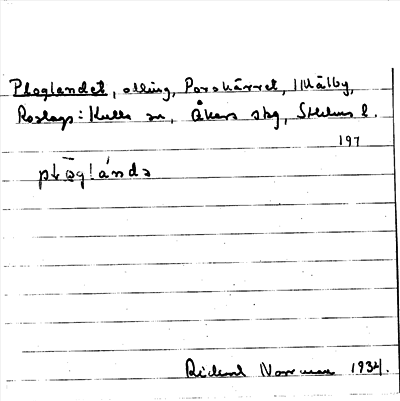 Ploglandet, odling, Porskärret, Målby,
Roslags: Kulla sn, Åkers skg, Sthlms l.
197
plo̅g!ándə
Rickard Norrman 1934.